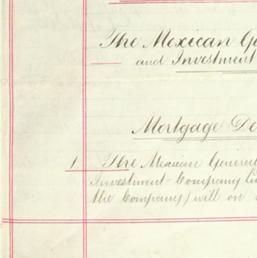 The Mexican Ge
and Investment
Mortgage De
1 The Mexican General
Investment Company Li
the Company) will on